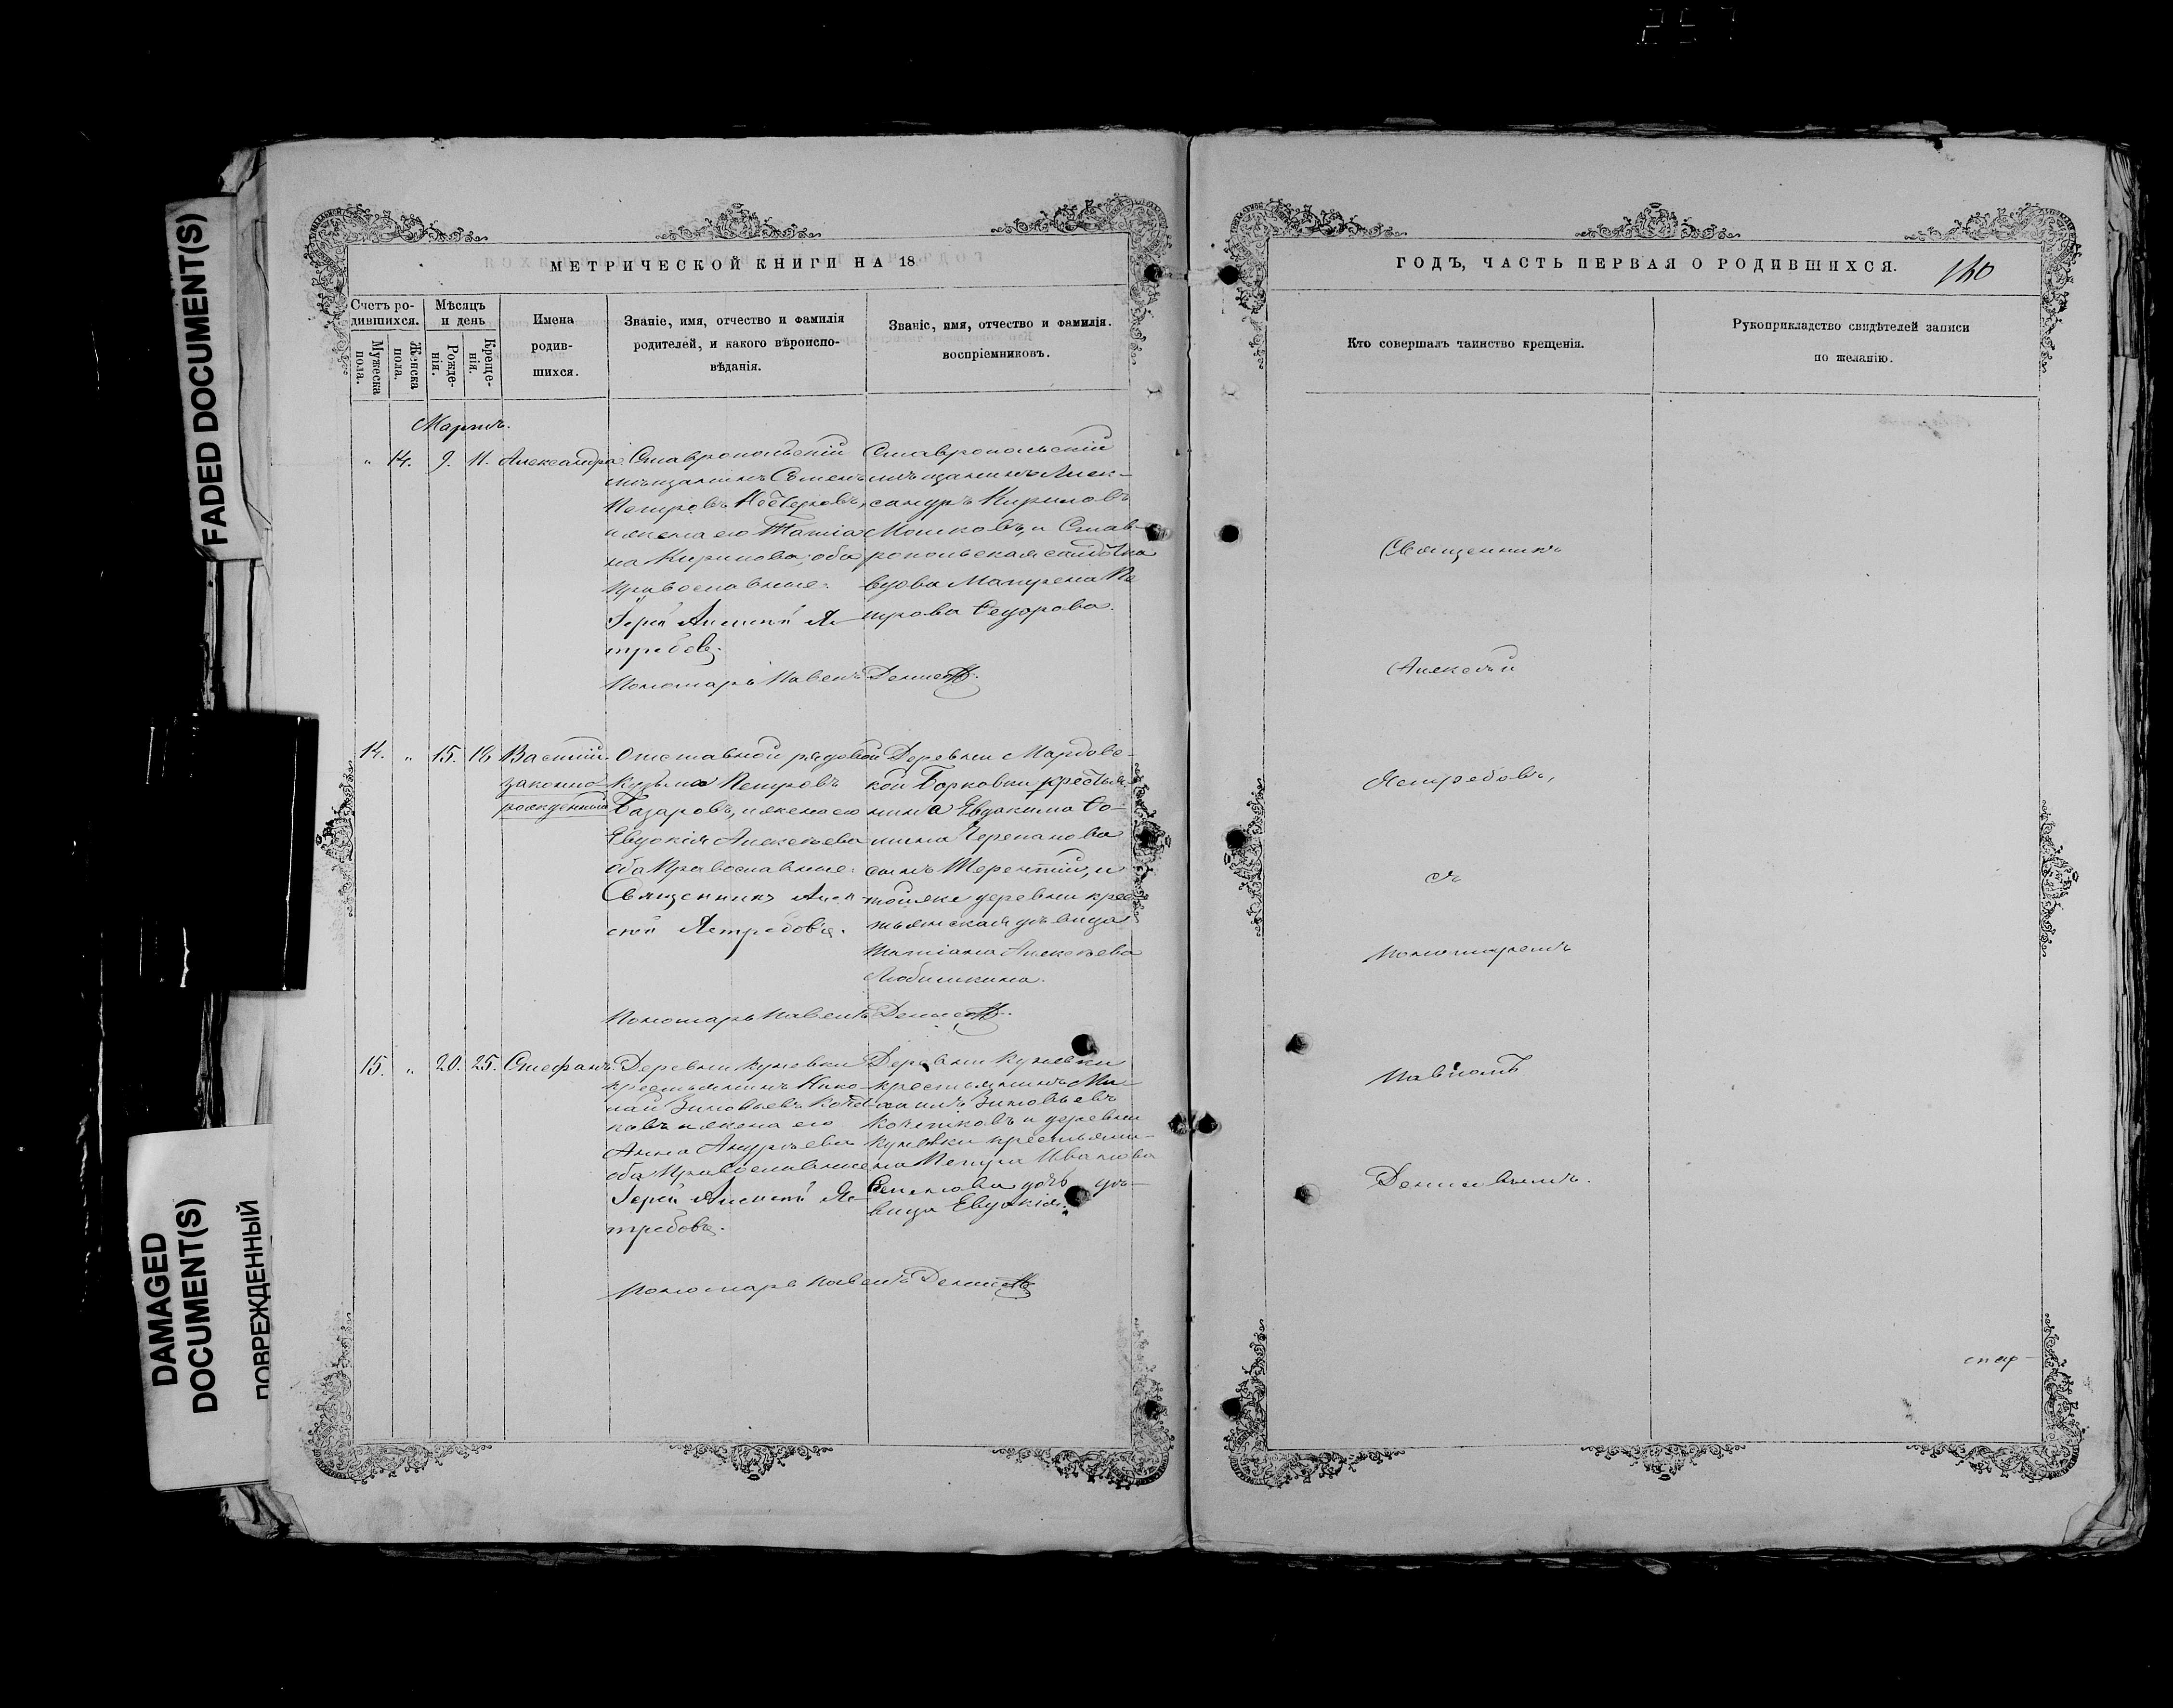 257
FADED DOCUMENT(S)
DAMAGED
DOCUMENT(S)
ПОВРЕЖДЕННЫЙ
МЕТРИЧЕСКОЙ КНИГИ НА 18
Счетъ ро-
дившихся.
Мужеска
пола.
Женска
пола.
Мѣсяцъ
и день
Рожде-
нія.
Креще-
нія.
Имена
родив-
шихся.
Званіе, имя, отчество и фамилія
родителей, и какого вѣроиспо-
вѣданія.
Званіе, имя, отчество и фамилія.
воспріемниковъ.
Мартъ.
„ 14. 9. 11. Александра.
Ставропольскій
мѣщанинъ Семенъ
Петровъ
и жена его Татіа
на Кирилова, оба
православные.
Іерей Алексѣй Яс-
требовъ.
Ставропольскій
мѣщанинъ Алек-
сандръ Кириловъ
и Став-
ропольская солдатка
вдова Матрена Пе
трова Федорова.
Пономарь Павелъ Денисовъ.
14. „ 15. 16 Василій.
законно-
рожденный
Отставной рядовой
Кузьма Петровъ
Базаровъ, и жена его
Евдокія Алексѣева
оба православные.
Священникъ Алек-
сѣй Ястребовъ.
Деревни Мордовс-
кой Борковки крестья
нина Евдокима Фо-
мина Черепанова
сынъ Терентій, и
той же деревни крес
тьянская дѣвица
Татіана Алексѣева
Любишкина.
Пономарь Павелъ Денисовъ.
15. „ 20. 25. Стефанъ.
Деревни Кунѣевки
крестьянинъ Нико-
лай Зиновьевъ Кочет-
ковъ и жена его
Анна Андрѣева
оба православные
Іерей Алексѣй Яс-
требовъ.
Деревни Кунѣевки
крестьянинъ
Зиновьевъ
Кочетковъ и деревни
Кунѣевки крестьяни-
на Петра Иванова
Семенова дочь дѣ-
вица Евдокія.
Пономарь Павелъ Денисовъ
ГОДЪ, ЧАСТЬ ПЕРВАЯ О РОДИВШИХСЯ.
140
Кто совершалъ таинство крещенія.
Рукоприкладство свидѣтелей записи
по желанію.
Священникъ
Алексѣй
Ястребовъ,
съ
Пономаремъ
Павломъ
Денисовымъ.